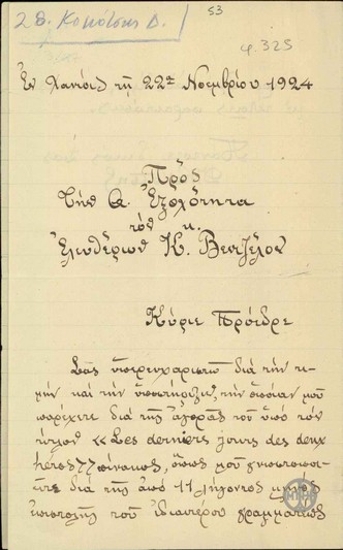 28. Κοκότσης Δ.
53
φ. 325
Ἐν Χανίοις τῇ 22ᾳ Νοεμβρίου 1924
Πρὸς
Τὴν Α. Ἐξοχότητα
τὸν κ.
Ἐλευθέριον Κ. Βενιζέλον
Κύριε Πρόεδρε
Σᾶς ὑπερευχαριστῶ διὰ τὴν τι-
μὴν καὶ τὴν ὑποστήριξιν, τὴν ὁποίαν μοῦ
παρέχετε διὰ τῆς ἀγορᾶς τοῦ ὑπὸ τὸν
τίτλον «Les derniers jours des deux
héros» πίνακος, ὅπως μοῦ γνωστοποι-
εῖτε διὰ τῆς ἀπὸ 11 λήγοντος μηνὸς
ἐπιστολῆς τοῦ ἰδιαιτέρου γραμματέως